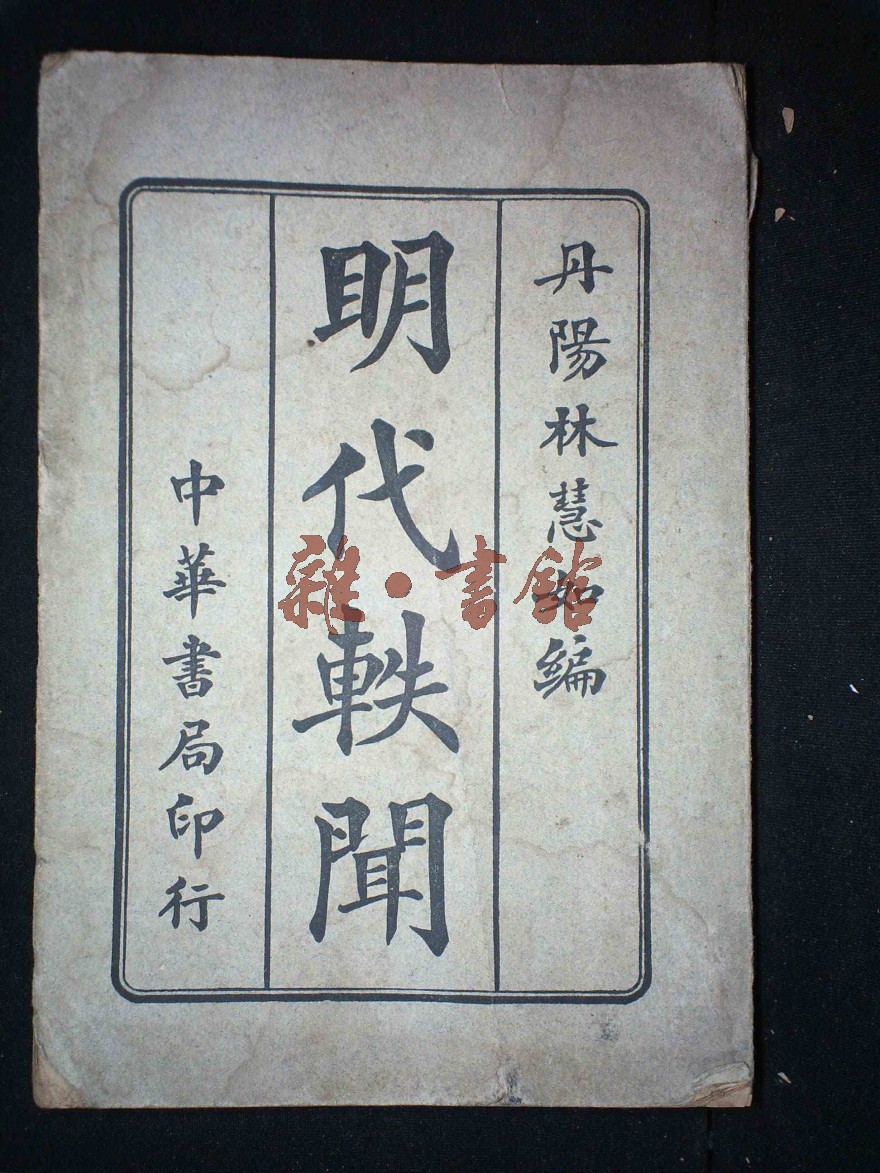 丹陽林慧如編
明代軼聞
中華書局印行
雜·書館